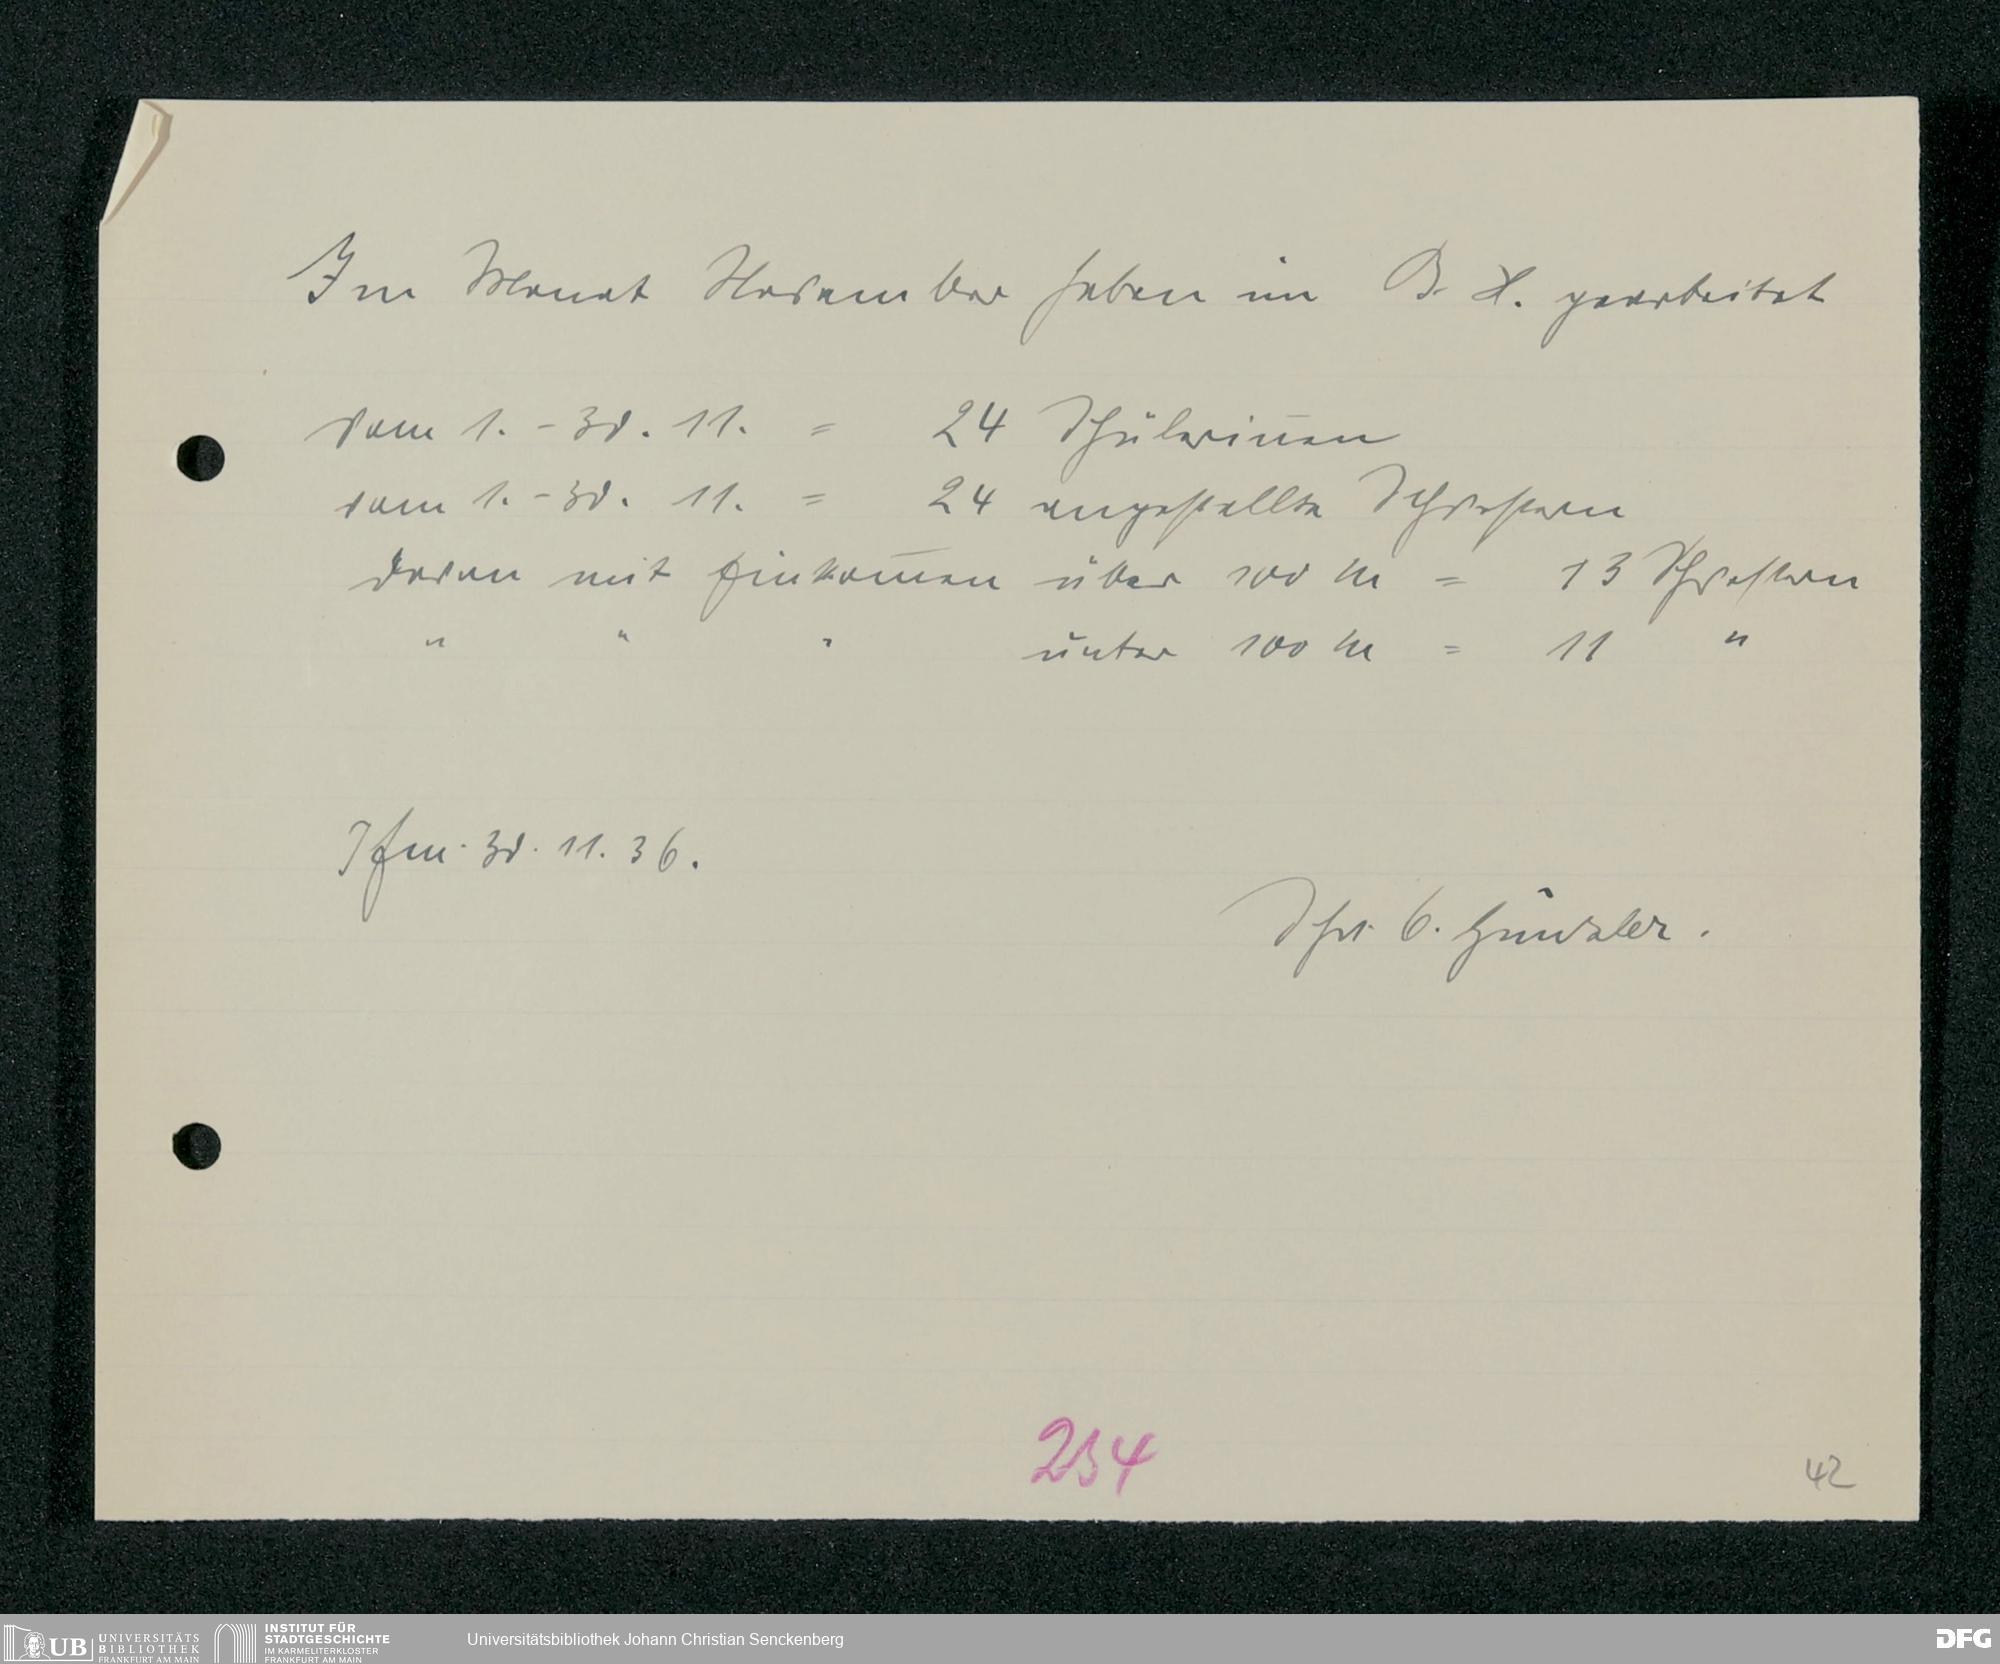 Im Monat November haben im B. H. gearbeitet
vom 1. - 30. 11. = 24 Schülerinnen
vom 1. - 30. 11. = 24 angestellte Schwestern
davon mit Einkommen über 100 M = 13 Schwestern
" " " unter 100 M = 11 "
Ffm. 30. 11. 36.
Schw.
234
42
UB UNIVERSITÄTS BIBLIOTHEK FRANKFURT AM MAIN
INSTITUT FÜR STADTGESCHICHTE IM KARMELITERKLOSTER FRANKFURT AM MAIN
Universitätsbibliothek Johann Christian Senckenberg
DFG